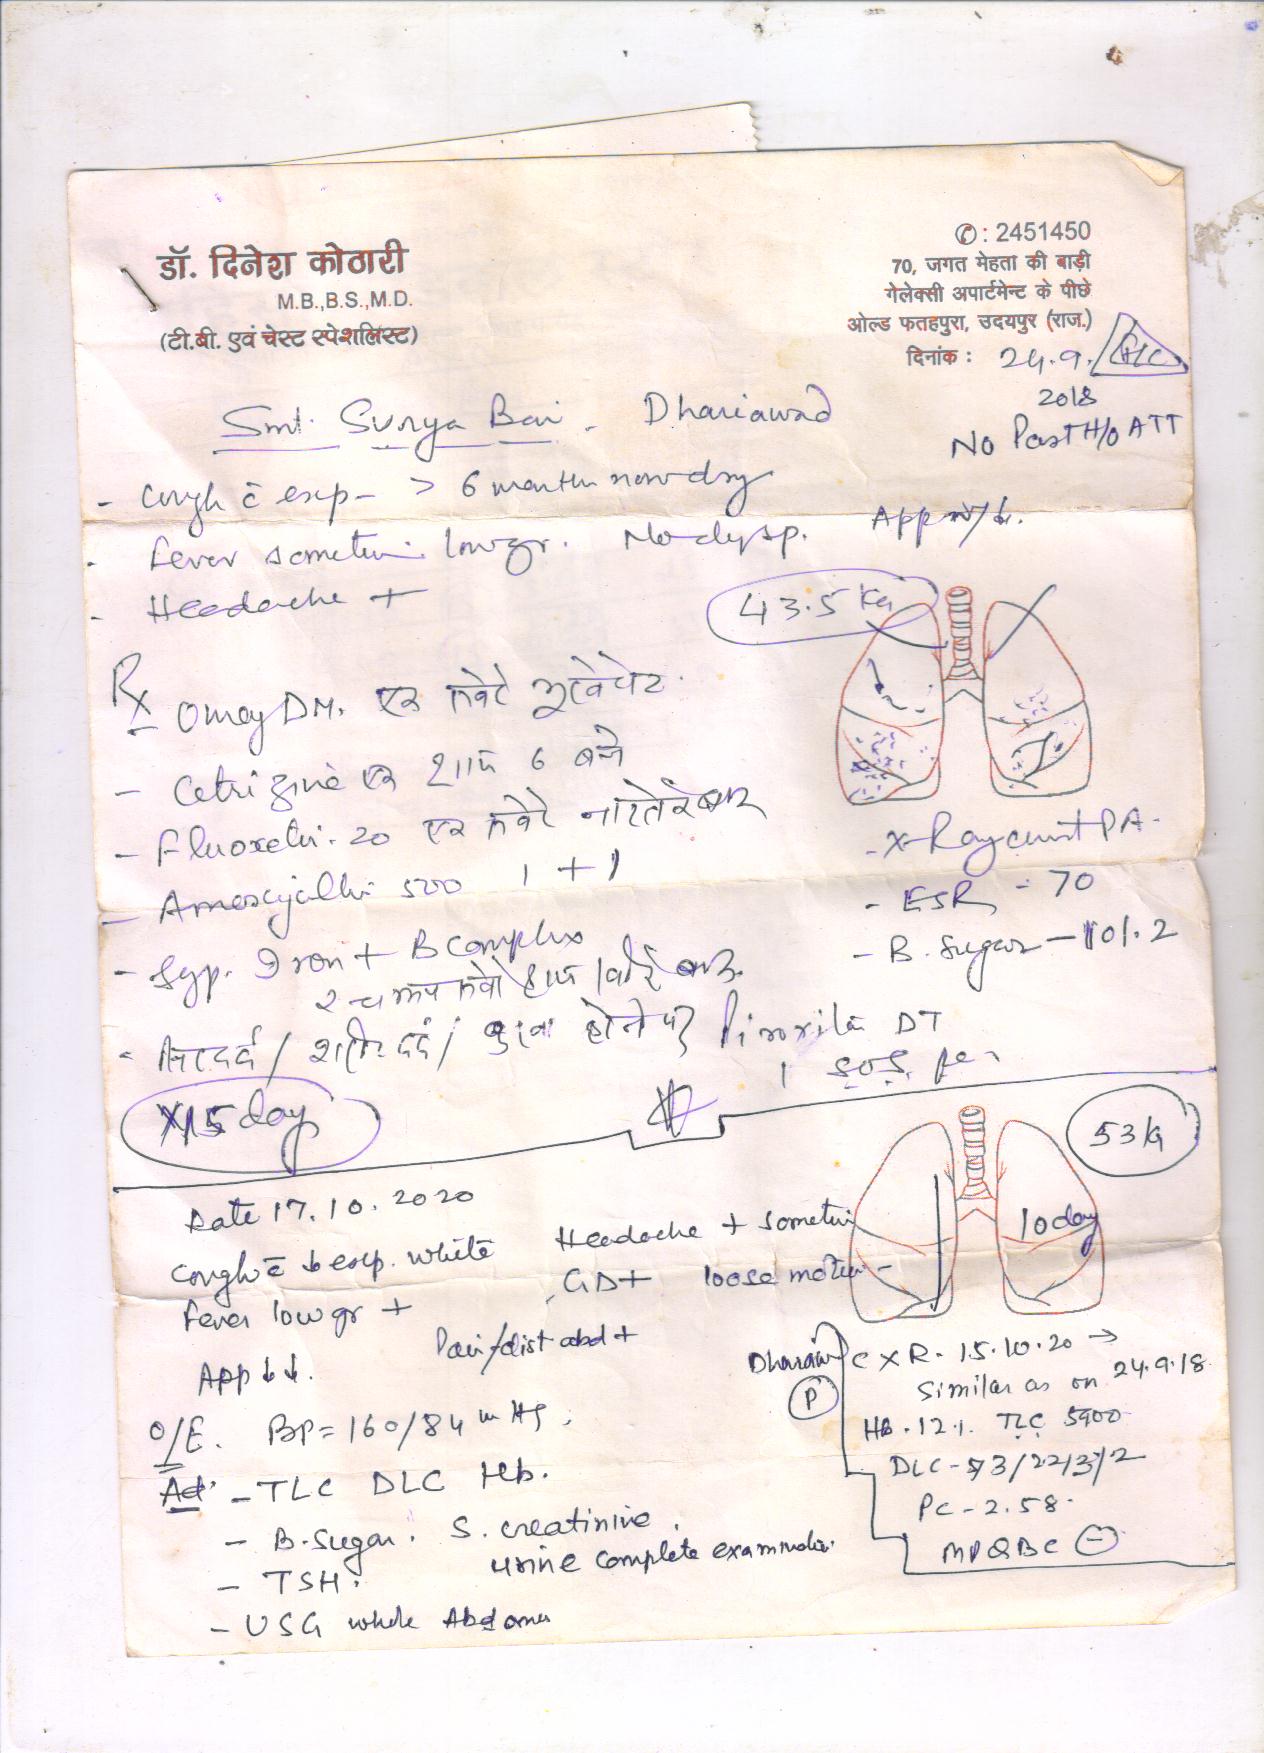 डॉ. दिनेश कोठारी
M.B.,B.S.,M.D.
(टी.बी. एवं चेस्ट स्पेशलिस्ट)
✆: 2451450
70, जगत मेहता की बाड़ी
गेलेक्सी अपार्टमेन्ट के पीछे
ओल्ड फतहपुरा, उदयपुर (राज.)
दिनांक : 24.9.
2018
No Past H/o ATT
Smt. Surya Bai - Dhariawad
- Cough c̄ exp - > 6 months now dry
- Fever sometim low gr. No dysp. App
- Headache +
43.5 Kg
Rx Omez DM.
- Cetrizine एक शाम 6 बजे
- Fluoxetin. 20 एक
- Amoxycillin 500 1 + 1
- Syp. Iron + B Complex
2 चम्मच
- सिरदर्द / शरीर दर्द / बुखार होने पर DT
1 SOS
X 15 day
- X-Ray chest PA -
- ESR - 70
- B. Sugar - 101.2
53 kg
10 day
Date 17.10.2020
Cough c̄ ↓ exp. white
Headache + sometim
Fever low gr +
GD + loose motion -
App ↓↓.
Pain/dist abd +
O/E. BP = 160/84 mm Hg.
Ad - TLC DLC Hb.
- B. Sugar. S. creatinine.
urine complete examination.
- TSH.
- USG whole Abdomen
Dhariaw
P
CXR - 15.10.20 →
Similar as on 24.9.18
Hb - 12.1. TLC 5900
DLC - 73/22/3/2
PC - 2.58.
MP QBC (-)